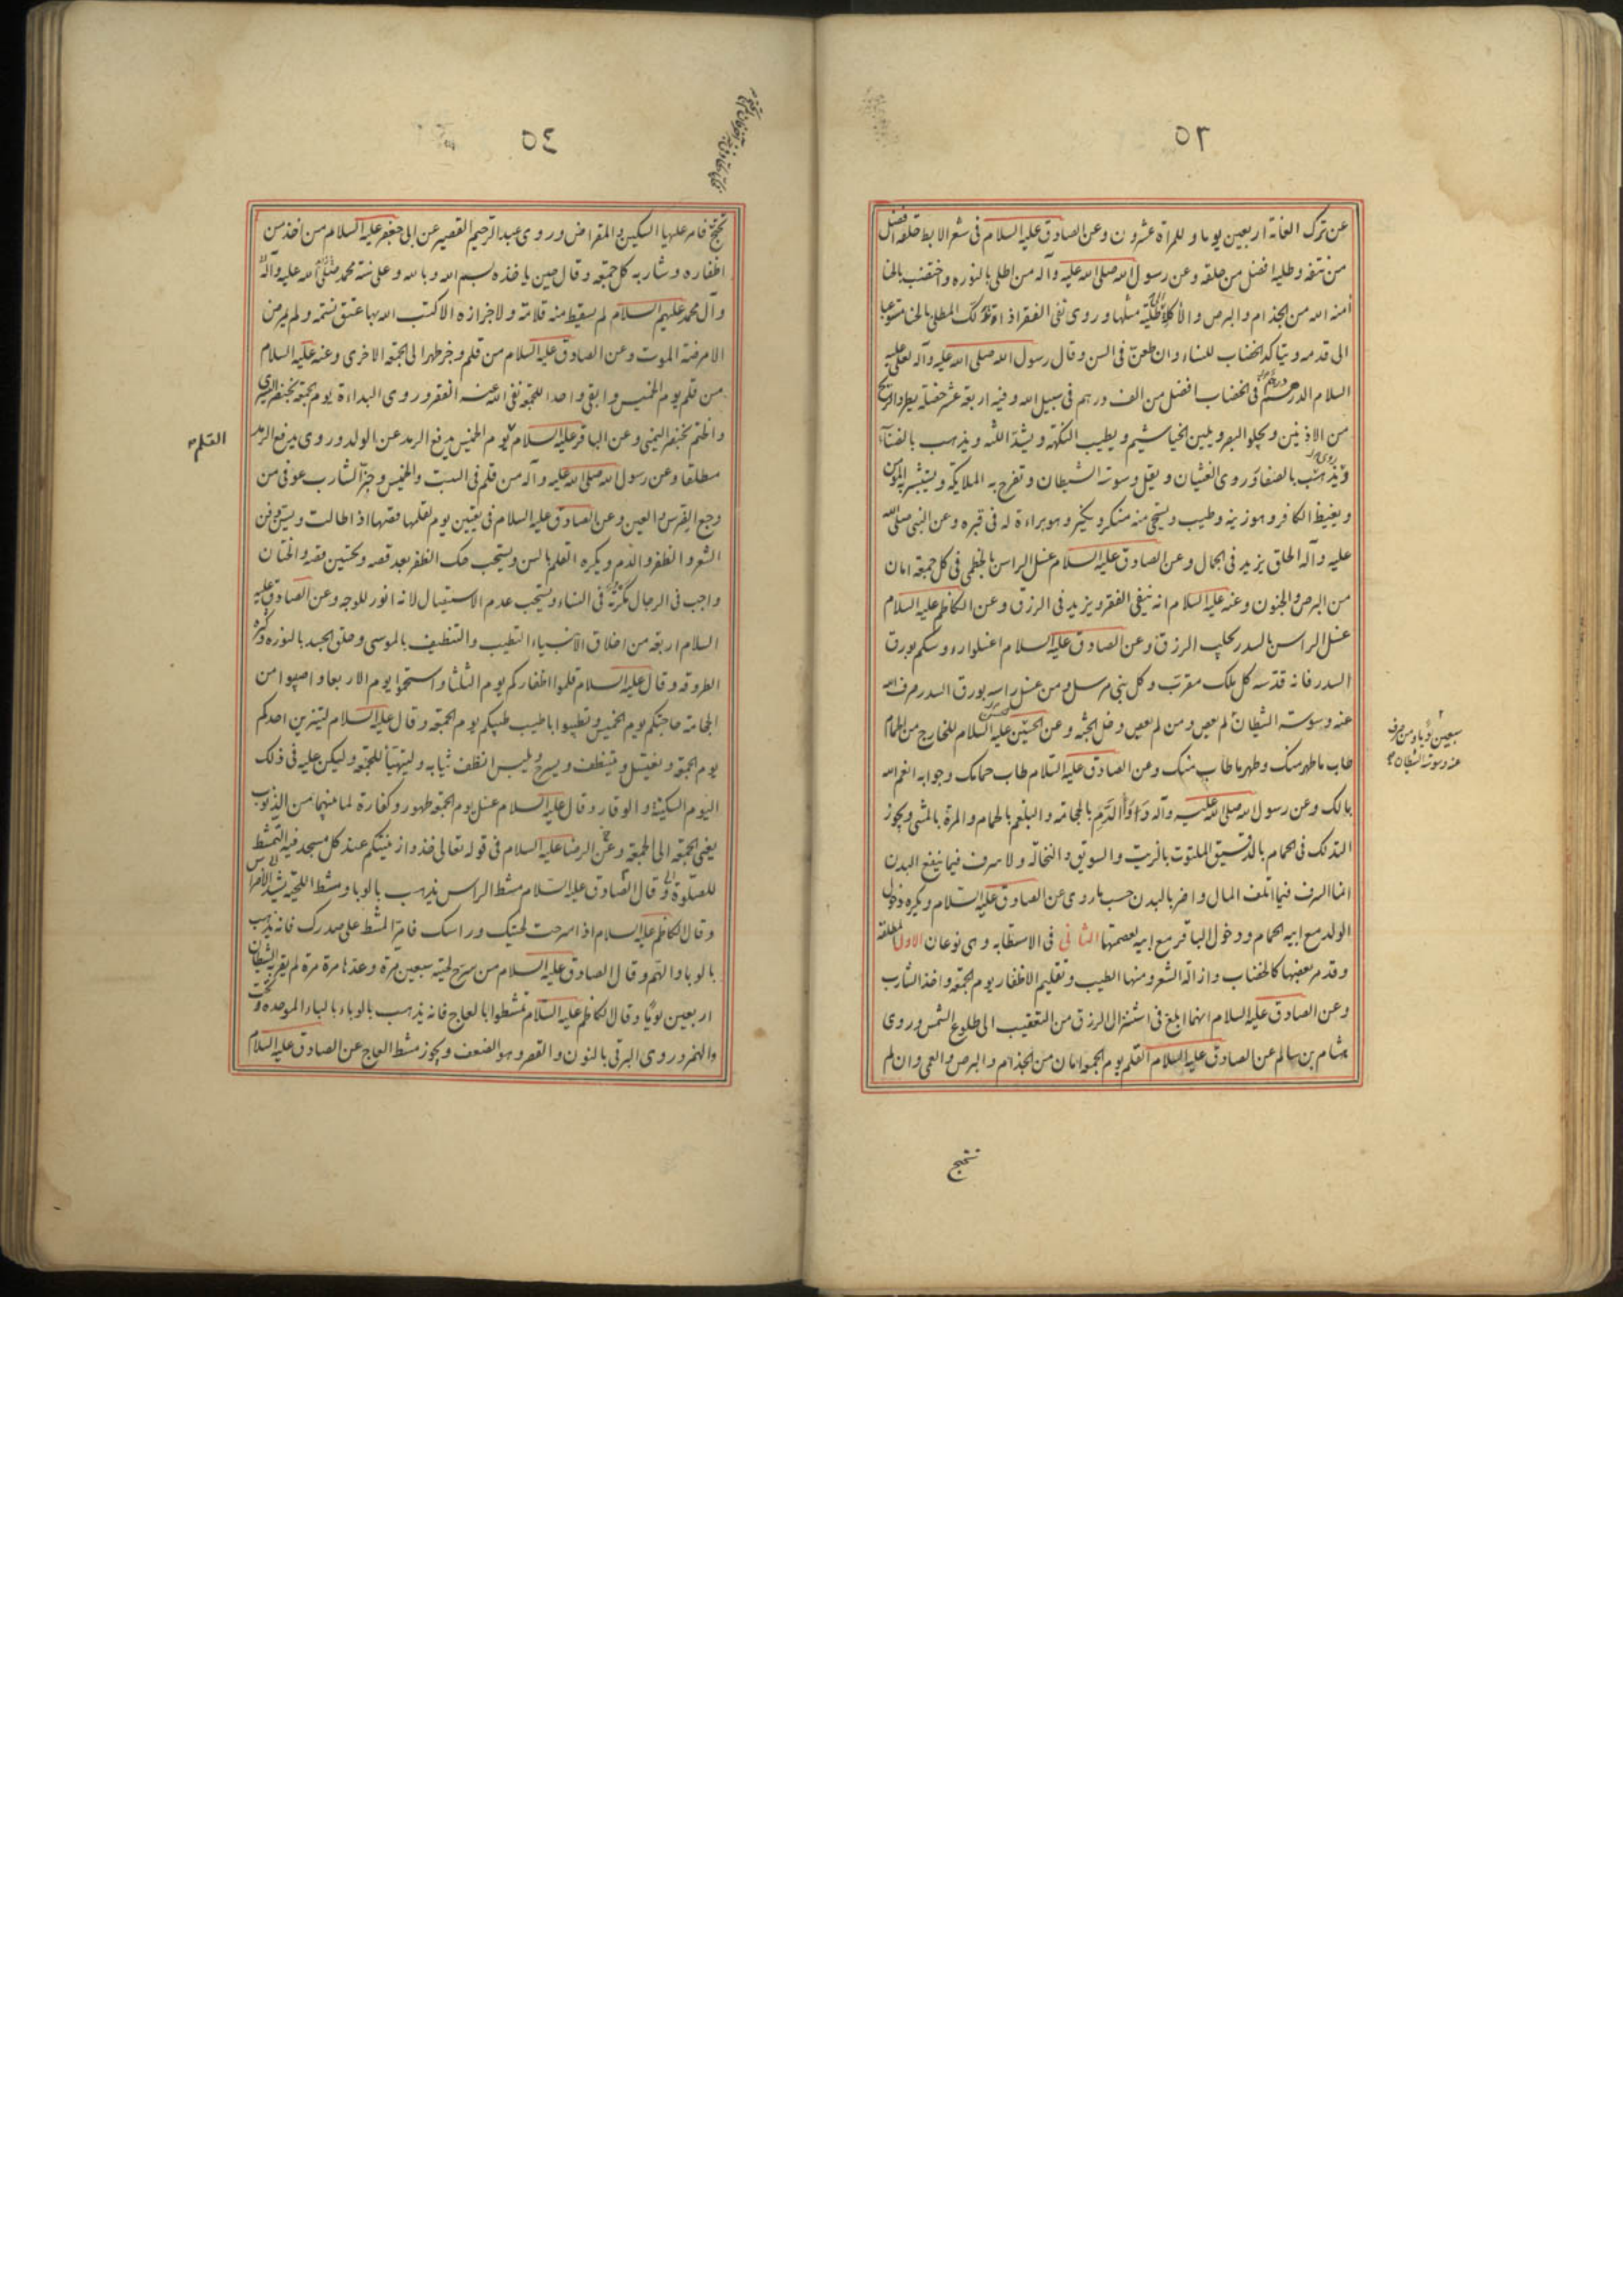 ٥٣
عن ترك العانة اربعين يوما وللمراة عشرون وعن الصادق عليه السلام فى شعر الابط حلقه افضل
من نتفه وطليه افضل من حلقه وعن رسول الله صلى الله عليه وآله من اطلى بالنوره واختضب بالحنا
آمنه الله من الجذام والبرص والاكلة الى طلية مثلها وروى نفى الفقر اذا تدلك المطلى بالحنا مستوعبا
الى قدمه ويتاكد الخضاب للنساء وان طعن فى السن وقال رسول الله صلى الله عليه وآله لعلى عليه
السلام الدرهم فى الخضاب افضل من الف درهم فى سبيل الله وفيه اربعة عشر خصلة يطرد الريح
من الاذنين ويجلو البصر ويلين الخياشيم ويطيب النكهة ويشد اللثه ويذهب بالضناء
ويذهب بالصنفا وروى الغشيان ويقل وسوسة الشيطان وتفرح به الملايكه ويستبشر به المومن
ويغيظ الكافر وهو زينه وطيب ويستحى منه منكر ونكير وهو براءة له فى قبره وعن النبى صلى الله
عليه وآله الحلق يزيد فى الجمال وعن الصادق عليه السلام غسل الراس بالخطمى فى كل جمعة امان
من البرص والجنون وعنه عليه السلام انه ينفى الفقر ويزيد فى الرزق وعن الكاظم عليه السلام
غسل الراس بالسدر يجلب الرزق وعن الصادق عليه السلام اغسلوا رءوسكم بورق
السدر فانه قدسه كل ملك مقرب وكل نبى مرسل ومن غسل راسه بورق السدر صرف الله
عنه وسوسة الشيطان لم يعص ومن لم يعص دخل الجنه وعن الحسن عليه السلام للخارج من الحمام
طاب ما طهر منك وطهر ما طاب منك وعن الصادق عليه السلام طاب حمامك وجوابه انعم الله
بالك وعن رسول الله صلى الله عليه وآله داووا الدم بالحجامة والبلغم بالحمام والمرة بالمشى ويجوز
التدلك فى الحمام بالدقيق الملتوت بالزيت والسويق والنخالة ولا سرف فيما ينفع البدن
انما السرف فيما اتلف المال واضر بالبدن حسب ما روى عن الصادق عليه السلام ويكره دخول
الولد مع ابيه الحمام ودخول الباقر مع ابيه لعصمتها الثانى فى الاستطابه وهى نوعان الاول المطلقه
وقد مر بعضها كالخضاب وازالة الشعر ومنها الطيب وتقليم الاظفار يوم الجمعة واخذ الشارب
وعن الصادق عليه السلام انهما ابلغ فى استنزال الرزق من التعقيب الى طلوع الشمس وروى
هشام بن سالم عن الصادق عليه السلام القلم يوم الجمعة امان من الجذام والبرص والعمى وان لم
تحتج
سبعين يوما ومن صرف
عنه وسوسة الشيطان
٥٤
تحتج فامر عليها السكين والمقراض وروى عبد الرحيم القصير عن ابى جعفر عليه السلام من اخذ من
اظفاره وشاربه كل جمعة وقال حين ياخذه بسم الله وبالله وعلى سنة محمد صلى الله عليه وآله
وآل محمد عليهم السلام لم يسقط منه قلامة ولا جزازه الا كتب الله بها عتق نسمة ولم يمرض
الا مرضة الموت وعن الصادق عليه السلام من قلم وجز طهر الى الجمعة الاخرى وعنه عليه السلام
من قلم يوم الخميس وابقى واحدا للجمعة نفى الله عنه الفقر وروى البداءة يوم الجمعة بخنصر اليسرى
والختم بخنصر اليمنى وعن الباقر عليه السلام يوم الخميس يدفع الرمد عن الولد وروى يدفع الرمد
القلم
مطلقا وعن رسول الله صلى الله عليه وآله من قلم فى السبت والخميس وجز الشارب عوفى من
وجع الضرس والعين وعن الصادق عليه السلام فى تعيين يوم لقلمها قصها اذا طالت ويستحب دفن
الشعر والظفر والدم ويكره القلم بالسن ويستحب حك الظفر بعد قصه وتحسين قصه والختان
واجب فى الرجال مكرمة فى النساء ويستحب عدم الاستيصال لانه انور للوجه وعن الصادق عليه
السلام اربعة من اخلاق الانبياء التطيب والتنظيف بالموسى وحلق الجسد بالنوره وكثرة
الطروقه وقال عليه السلام قلموا اظفاركم يوم الثلثا واستحموا يوم الاربعا واصيبوا من
الحجامة حاجتكم يوم الخميس وتطيبوا باطيب طيبكم يوم الجمعة وقال عليه السلام ليتزين احدكم
يوم الجمعة ويغتسل ويتنظف ويسرح ويلبس انظف ثيابه وليتهيأ للجمعة وليكن عليه فى ذلك
اليوم السكينة والوقار وقال عليه السلام غسل يوم الجمعة طهور وكفارة لما بينهما من الذنوب
يعنى الجمعة الى الجمعة وعن الرضا عليه السلام فى قوله تعالى خذوا زينتكم عند كل مسجد فيه التمشط
للصلوة وقال الصادق عليه السلام مشط الراس يذهب بالوبا ومشط اللحية يشد الاضراس
وقال الكاظم عليه السلام اذا سرحت لحيتك وراسك فامر المشط على صدرك فانه يذهب
بالوبا والهم وقال الصادق عليه السلام من سرح لحيته سبعين مرة وعدها مرة مرة لم يقربه الشيطان
اربعين يوما وقال الكاظم عليه السلام تمشطوا بالعاج فانه يذهب بالوباء بالباء الموحده تحت
والهمز وروى البرقى بالنون والقصر وهو الضعف ويجوز مشط العاج عن الصادق عليه السلام